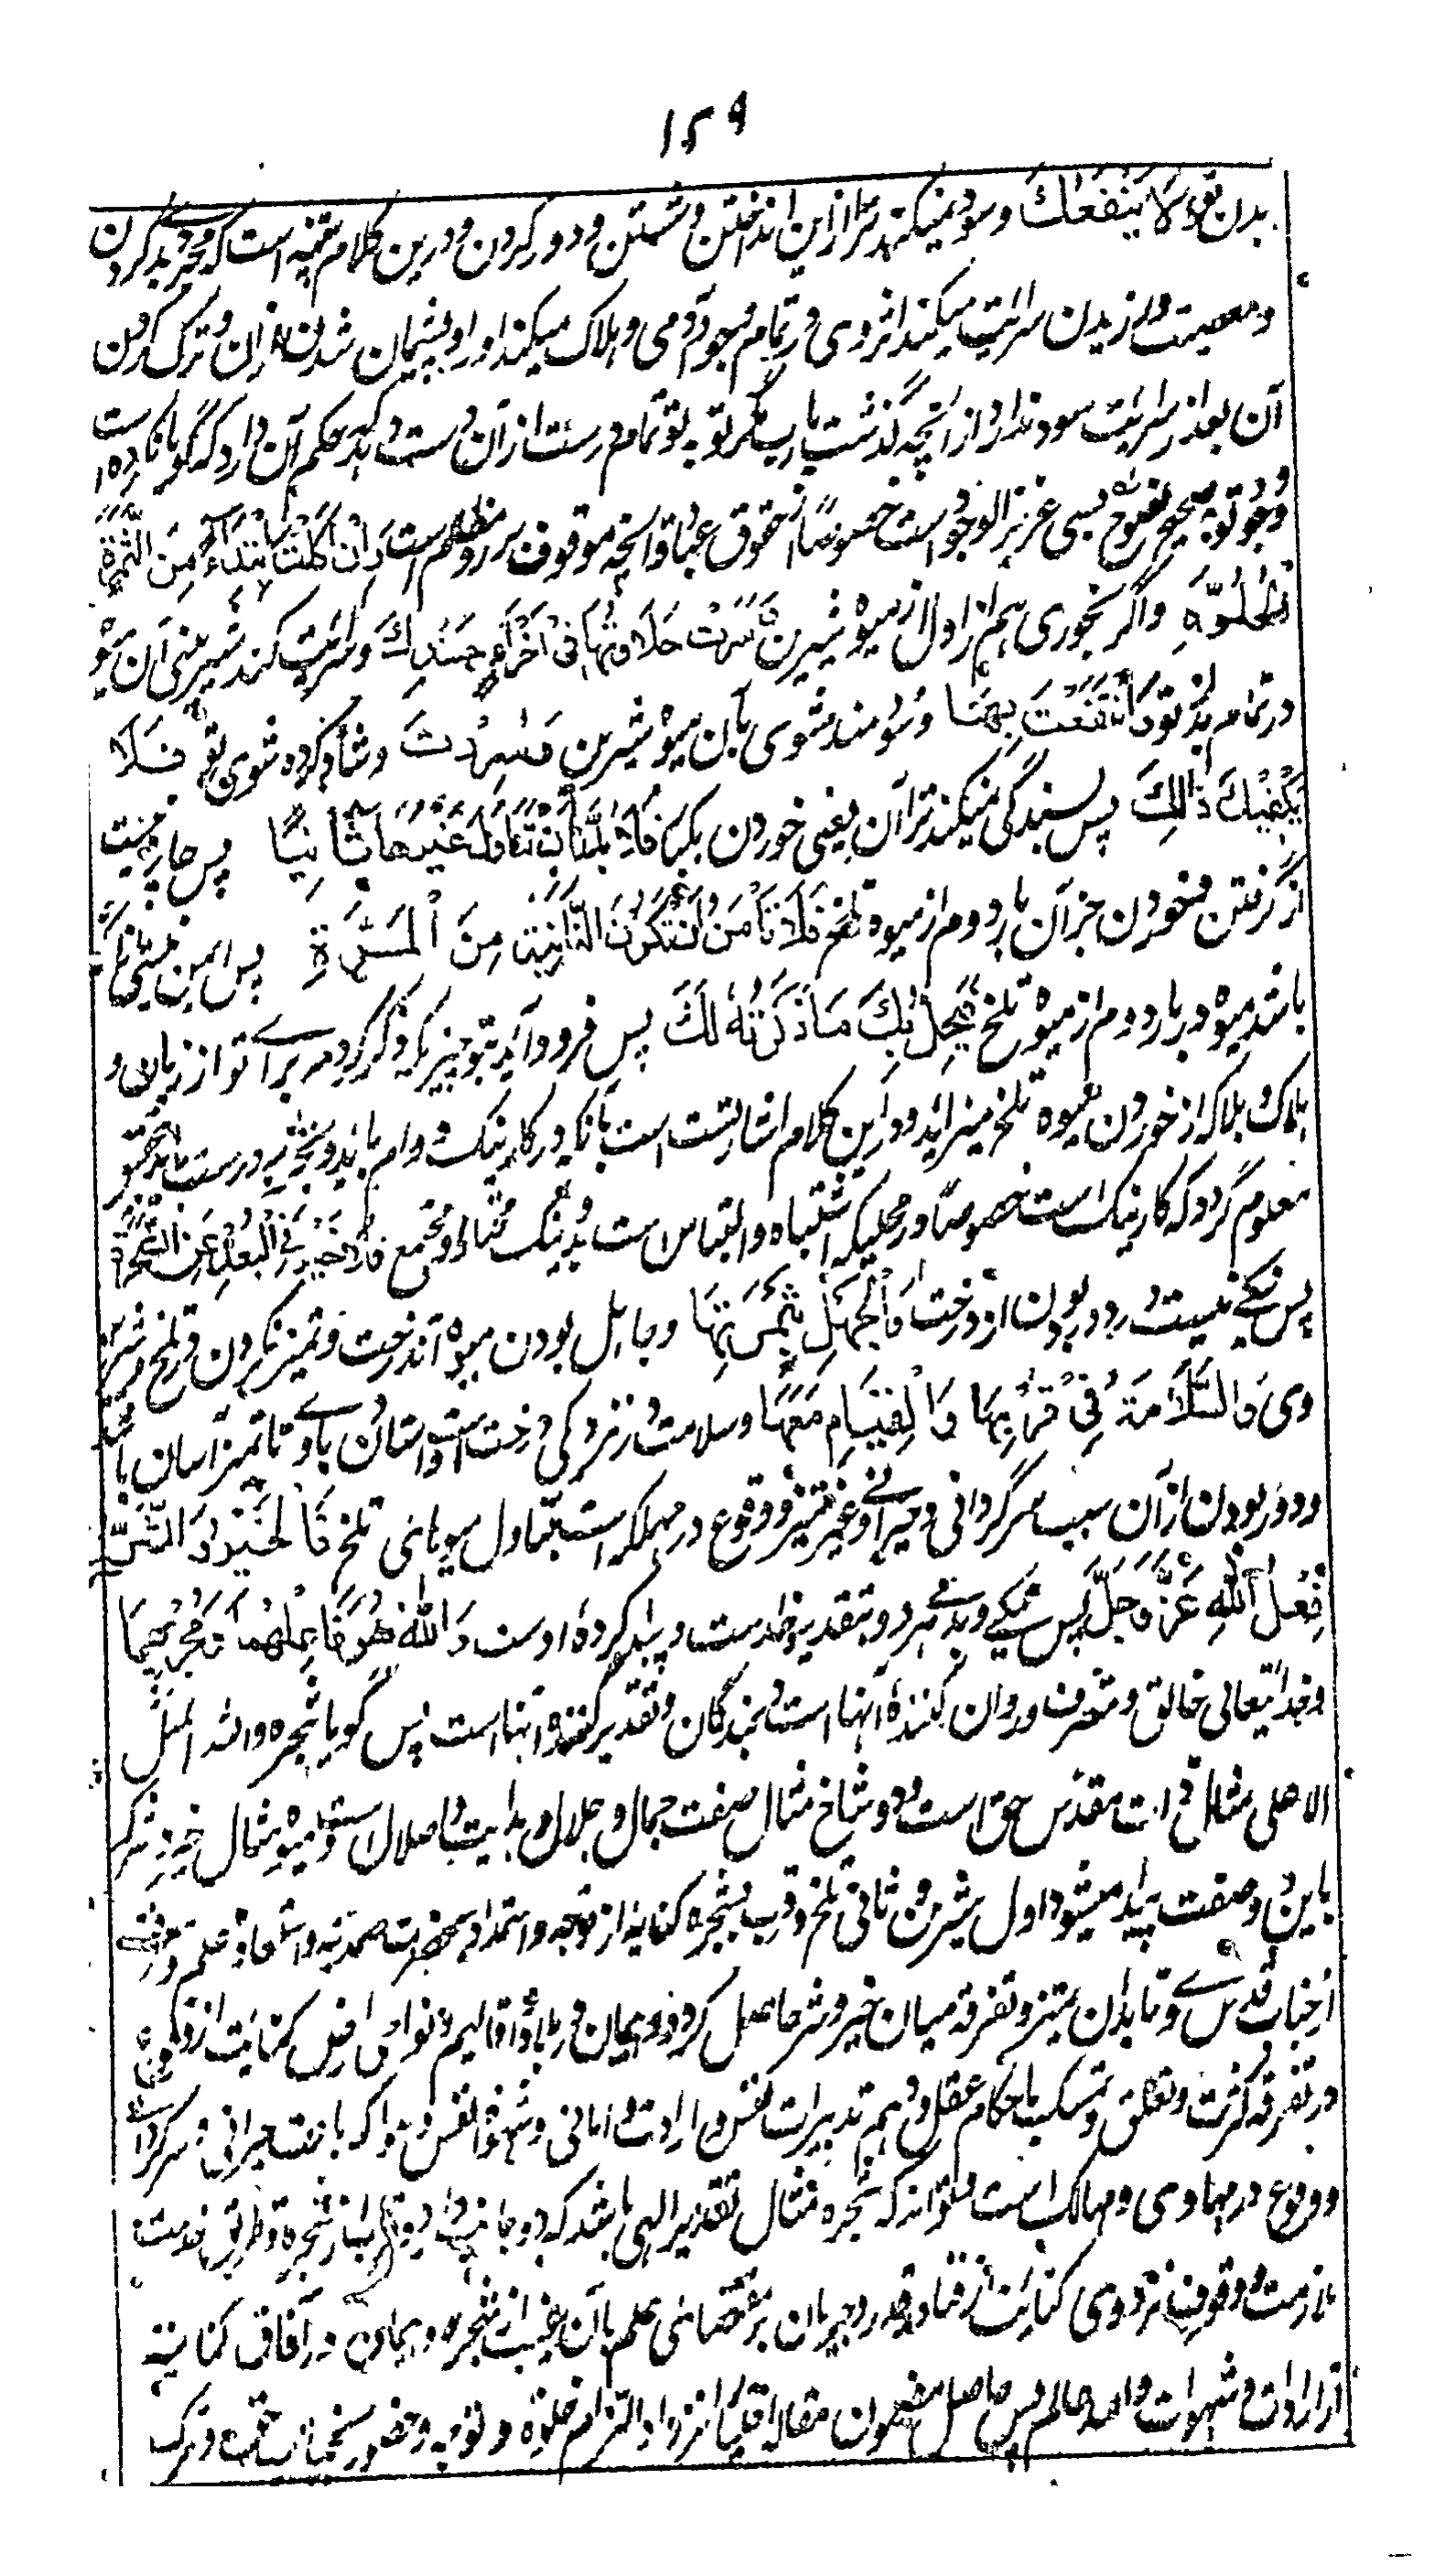 ۱۵۹
بدن تو و لَا يَنْفَعُكَ وسود نمیکند ترا ازین انداختن و شستن و دور کردن و درین کلام تنبیه است که بدے کردن
و معصیت ورزیدن سرایت میکند اثر وی در تمام وجود آدمی و هلاک میکند او را و پشیمان شدن ازان و ترک کردن
آن بعد از سرایت سود ندارد از آنچه گذشت یارب مگر توبه تمام درست از آن دست دهد که حکم آن دارد که گویا نکرده است
وجود توبه صحیح نصوح بسی عزیز الوجود است خصوصاً از حقوق عباد و آنچه موقوف بر رد مظالم است وَاِنْ اَكَلْتَ ابْتِدَاءً مِنَ الثَّمَرَةِ
الْحُلْوَةِ و اگر بخوری هم از اول از میوه شیرین سَرَتْ حَلَاوَتُهَا فِى اَجْزَاءِ جَسَدِكَ و سرایت کند شیرینی آن میوه
در تمام بدن تو وَانْتَفَعْتَ بِهَا و سودمند شوی بآن میوه شیرین وَسُرِرْتَ و شاد کرده شوی تو فَلَا
يَكْفِيْكَ ذَالِكَ پس بسندگی نمیکند ترا آن یعنی خوردن یکبار فَلَا بُدَّ اَنْ تَتَنَاوَلَ غَيْرَهَا ثَانِيًا پس چاره نیست
از گرفتن و خوردن جز آن بار دوم از میوه تلخ فَلَا تَأْمَنُ اَنْ تَكُوْنَ الثَّانِيَةُ مِنَ الْمَرَّةِ پس ایمن نیستی که
باشد میوه در بار دوم از میوه تلخ فَيَحِلُّ بِكَ مَا ذَكَرْتُهُ لَكَ پس فرود آید بتو چیزیکه ذکر کردم براے تو از زیان و
هلاک و بلا که از خوردن میوه تلخ میزاید و درین کلام اشارتست است بآنکه در کار نیک دوام باید و تجربه درست باید تا بتحقیق
معلوم گردد که کار نیک است خصوصاً در محلیکه اشتباه و التباس است بد و نیک مختلط و مجتمع فَلَا خَيْرَ فِى الْبُعْدِ عَنِ الشَّجَرَةِ
پس نیکے نیست در دور بودن از درخت وَالْجَهْلِ بِثَمَرَتِهَا و جاهل بودن میوه آن درخت و تمیز نکردن در تلخ و شیرین
وى وَالسَّلَامَةُ فِىْ قُرْبِهَا وَالْقِيَامِ مَعَهَا و سلامت در نزدیکی درخت است و استادن باو تا تمیز آسان باشد
و دور بودن از آن سبب سرگردانی و حیرانے و غیر متمیز و وقوع در مهلکه است بتناول میوهای تلخ فَالْخَيْرُ وَالشَّرُّ
فِعْلُ اللّٰهِ عَزَّ وَجَلَّ پس نیکے و بدے هر دو بتقدیر خداست و پیدا کرده اوست وَاللّٰهُ هُوَ فَاعِلُهُمَا وَمُجْرِيْهِمَا
و خدایتعالی خالق و متصرف و روان کننده آنها است و بر بندگان و تقدیر کننده آنها است پس گویا شجره و الله المثل
الاعلی مثال ذات مقدس حق است و دو شاخ مثال صفت جمال و جلال و هدایت و اضلال است و میوه مثال خیر و شر که
باین دو صفت پیدا میشود اول شیرین و ثانی تلخ و قرب بشجره کنایه از توجه و استمداد بحضرت صمدیه و استفاده علم و معرفتے
از جناب قدس وے و تا بدان تمیز و تفرقه میان خیر و شر حاصل کردد و هیمان در بلاد و اقالیم و نواحی ارض کنایت از وقوع
در تفرقه کثرت و تعلق و تمسک باحکام عقل و وهم و تدبیرات نفس و ارادت و امانی و شهوات نفس و هوا که باعث حیرانی و سرگردانے
و وقوع در مهاوی و مهالک است و میتواند که شجره مثال تقدیر الهی باشد که دو جانب دارد و قرب از شجره و طریق خدمت
ملازمت و وقوف نزد وی کنایت از انقیاد قدر و جریان بر مقتضای علم بآن و غیبت از شجره و هیمان در آفاق کنایت
از ارادات و شهوات واهمه عالم پس حاصل مضمون مقاله اقتضا انزوا و التزام خلوة و توجه و حضور بجناب حق و ترک